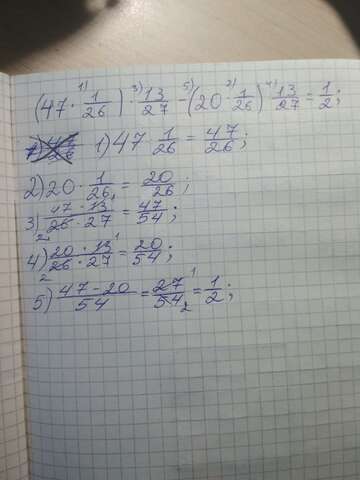 (47 · 1/26) · 13/27 - (20 · 1/26) · 13/27 = 1/2;
1) 47 · 1/26 = 47/26;
2) 20 · 1/26 = 20/26;
3) 47 · 13/26 · 27 = 47/54;
4) 20 · 13/26 · 27 = 20/54;
5) 47 - 20/54 = 27/54 = 1/2;